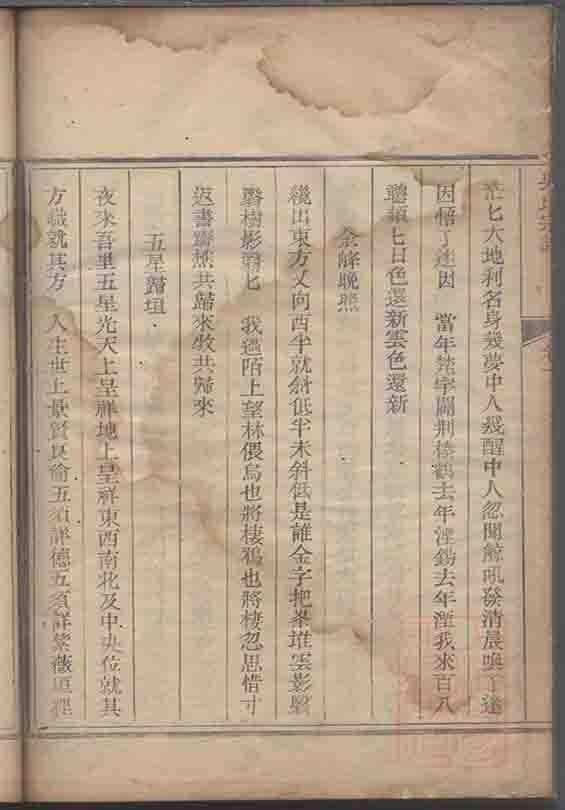 茫匕大地利名身幾夢中人幾醒中人忽聞鯨吼發清晨喚了迷
因悟了迷因　當年梵宇闢荊榛鶴去年湮錫去年湮我來百八
聽頻匕日色還新雲色還新
金峰晚照
纔出東方又向西半就斜低半未斜低是誰金字把峯堆雲影
樹影匕　我過陌上望林偎烏也將棲鴉也將棲忽思惜寸
返書齋樵共歸來牧共歸來
五星歸垣
夜來吾里五星光天上呈祥地上呈祥東西南北及中央位就其
方職就其方　人生世上最賢良倫五須詳德五須詳紫薇垣裡